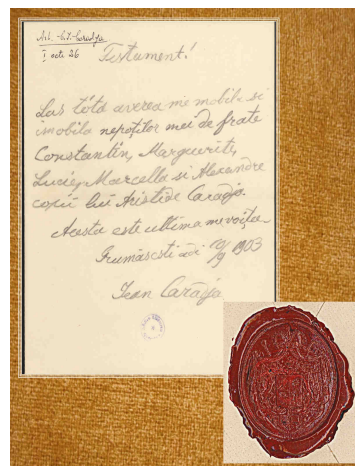 Arh. C.I. Caradja
I acte 26
Testament!
Las tótă averea me mobile si
imobila nepoților mei de frate
Constantin, Marguerite,
Lucie, Marcella si Alexandre
copii lui Aristide Caradja.
Acesta este ultima me voița.
Grumăscsti 10/9 1903
Jean Caradja